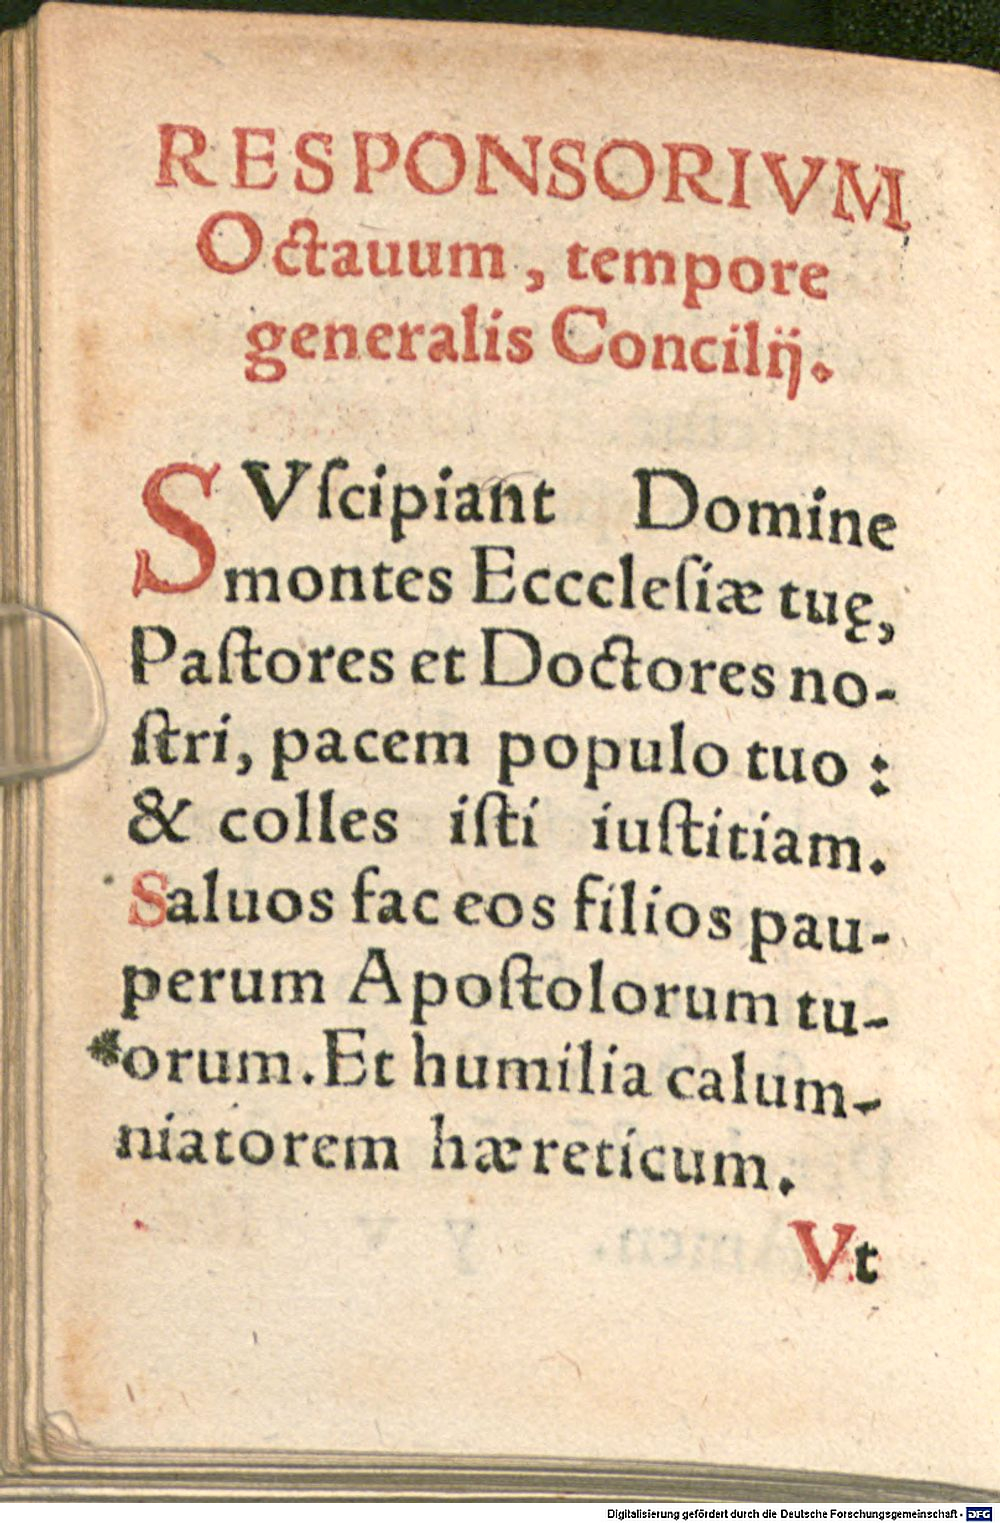 RESPONSORIVM
Octauum, tempore
generalis Concilij.
SVſcipiant Domine
montes Eccclesiæ tuę,
Paſtores et Doctores no-
ſtri, pacem populo tuo :
& colles iſti iuſtitiam.
Saluos fac eos filios pau-
perum Apoſtolorum tu-
*orum. Et humilia calum-
niatorem hæreticum.
Vt
Digitalisierung gefördert durch die Deutsche Forschungsgemeinschaft - DFG